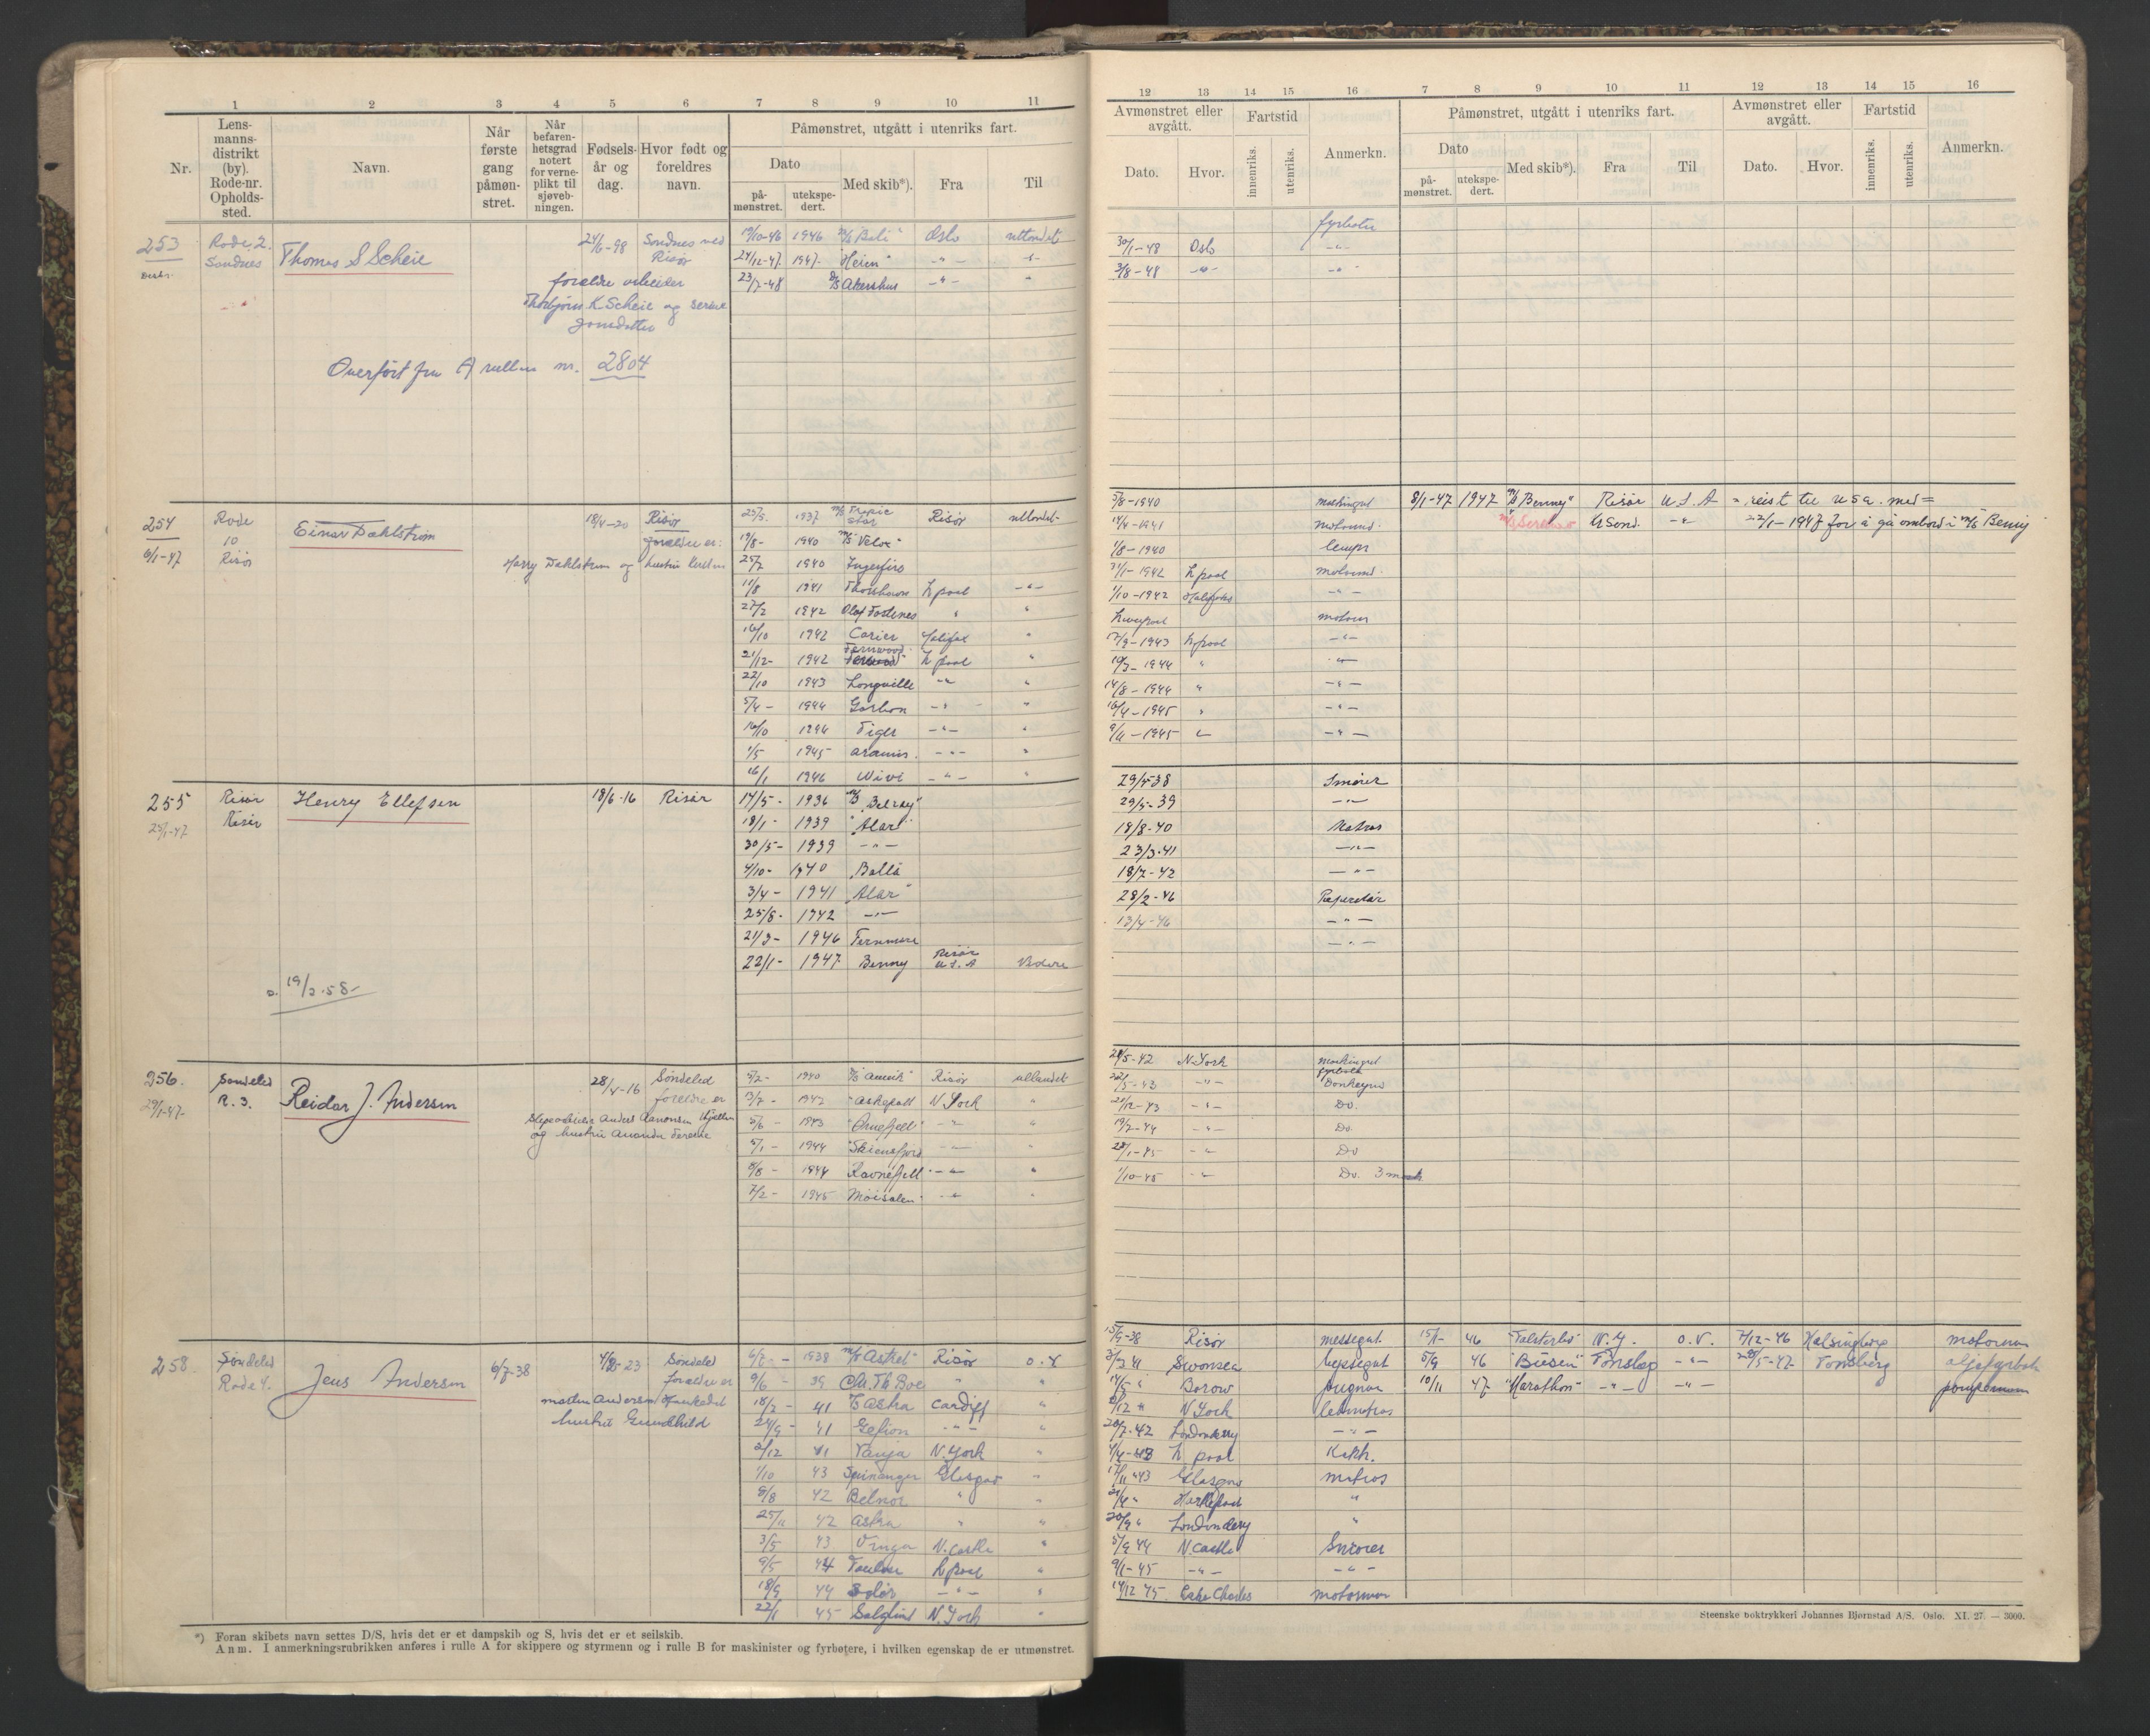 1 2 3 4 5 6 7 8 9 10 11
Nr.
Lens-
manns-
distrikt
(by).
Rode-nr.
Opholds-
sted.
Navn.
Når
første
gang
påmøn-
stret.
Når
befaren-
hetsgrad
notert
for verne-
plikt til
sjøveb-
ningen.
Fødsels-
år og
dag.
Hvor født og
foreldres
navn.
Påmønstret, utgått i utenriks fart.
Dato
på-
mønstret.
utekspe-
dert.
Med skib*).
Fra
Til
253 Rode 2. Thomas S Scheie 24/6-98 Søndnes ved 19/10-46 1946 M/S "Bali" Oslo utlandet
Søndnes Risør 24/12-47 1947 "Heien" -"- -"-
foreldre arbeider 23/7-48 D/S Akershus -"- "
Thorbjørn K Scheie og
Overført fra A rullen nr. 2804
254 Rode Einar Dahlstrøm 18/4-20 Risør 25/5- 1937 M/S Tropic Star Risør utlandet
10 foreldre er: 19/8- 1940 M/S "Velox"
6/1-47 Risør Harry Dahlstrøm og hustru 25/7 1940 Ingerfire
11/8 1941 L pool -"-
27/2 1942 Olaf Fostenes " "
16/10 1942 Carier Halifax "
21/12- 1942 Fernwood L pool "
22/10 1943 Longville -"- "
5/4- 1944 Garbon -"- "
16/10 Tiger -"- "
1/5 1945 Aramis -"- "
16/1 1946 Wivi -"- "
255 Risør Henry Ellefsen 18/6-16 Risør 14/5- 1936 M/S "Belray"
25/1-47 Risør 18/1- 1939 "Alar"
30/5- 1939 -"-
4/10- 1940 Balla
3/4- 1941 "Alar"
25/8- 1942 -"-
21/3- 1946 Fernmoor
22/1- 1947 Benny Risør U.S.A
19/3.58-
256. Søndeled Reidar J. Andersen 28/4-16 Søndeled 5/2- 1940 Risør utlandet
29/1-47- R. 3. foreldre er 3/7- 1942 "Askepott" N York "
Anders Aanonsen 5/6- 1943 "Ornefjell" -"-
og hustru Amanda 5/1- 1944 "Skiensfjord" -"-
8/8- 1944 Ravnefjell -"- "
7/2- 1945 Møisalen -"-
258. Søndeled Jens Andersen 6/7-38 Søndeled 1938 M/S "Astrel" Risør O.V
Rode 4. foreldre er 9/6- 39 Ch. Th. Boe " "
Andersen 18/2- 41 Astra Cardiff "
hustru Gunhild 24/9- 41 Gefion -"- "
2/12 41 Vanja N.York "
1/10 43 Spinanger Glasgow "
8/8 42 Belnor " "
25/11 42 Astra " "
3/5 43 Vinga N.castle "
9/5 44 L pool "
18/9 44 Solør -"- "
22/1 45 N.York "
*) Foran skibets navn settes D/S, hvis det er et dampskib og S, hvis det er et seilskib.
Anm. I anmerkningsrubrikken anføres i rulle A for skippere og styrmenn og i rulle B for maskinister og fyrbøtere, i hvilken egenskap de er utmønstret.
12 13 14 15 16 7 8 9 10 11 12 13 14 15 16
Avmønstret eller
avgått.
Dato.
Hvor.
Fartstid
innenriks.
utenriks.
Anmerkn.
Påmønstret, utgått i utenriks fart.
Dato
på-
mønstret.
utekspe-
dert.
Med skib*).
Fra
Til
Avmønstret eller
avgått.
Dato.
Hvor.
Fartstid
innenriks.
utenriks.
Anmerkn.
fyrbøter
30/1-48 Oslo -"-
3/8-48 -"- -"-
5/8-1940 maskingut 8/1-47 1947 M/S "Benny" Risør U.S.A = reist til USA. med =
14/4-1941 Kr Sand. -"- 22/1-1947 for å gå ombord i M/S Benny
1/8-1940 lemper
31/1-1942 L pool
1/10-1942 -"-
Liverpool
17/9-1943 L pool -"-
10/3-1944 " -"-
14/8-1944 " -"-
16/4-1945 " -"-
9/11-1945 " -"-
29/5-38 Smører
29/5-39 -"-
18/8-40 Matros
23/3-41 -"-
18/7-42 -"-
28/2-46 Reperatør
13/4-46 -"-
-"-
21/5-42 N York maskingut
fyrbøter
22/5-43 -"- Donkeyman
21/12-43 -"- Do.
19/7-44 -"- Do.
28/1-45 -"- Do
1/10-45 -"- Do. 3 mask
15/9-38 Risør messegut 46 N.Y. O.V. 7/12-46 Halsingborg motorman
3/2 41 Swansea 5/9 46 "Busen" Tønsberg -"- 28/5-47 Tønsberg oljefyrbøter
14/5 " Barow jungman 10/11 47 "Marathon" -"- -"- pumpemann
2/12 " N York letmatros
20/7-42 Londonderry -"-
4/4-43 L pool Kokk.
17/11 43 Glasgow matros
"
20/9 " Londonderry "
5/9 44 N.castle Smører
9/1-45 -"- -"-
14/12 45. Lake Charles motorman
Steenske boktrykkeri Johannes Bjørnstad A/S. Oslo. XI. 27. — 3000.